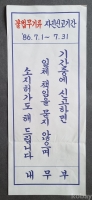 불법무기류 자진신고기간
'86. 7. 1 ~ 7. 31
기간중에 신고하면
일체 책임을 묻지 않으며
소지허가도 해 드립니다
내무부